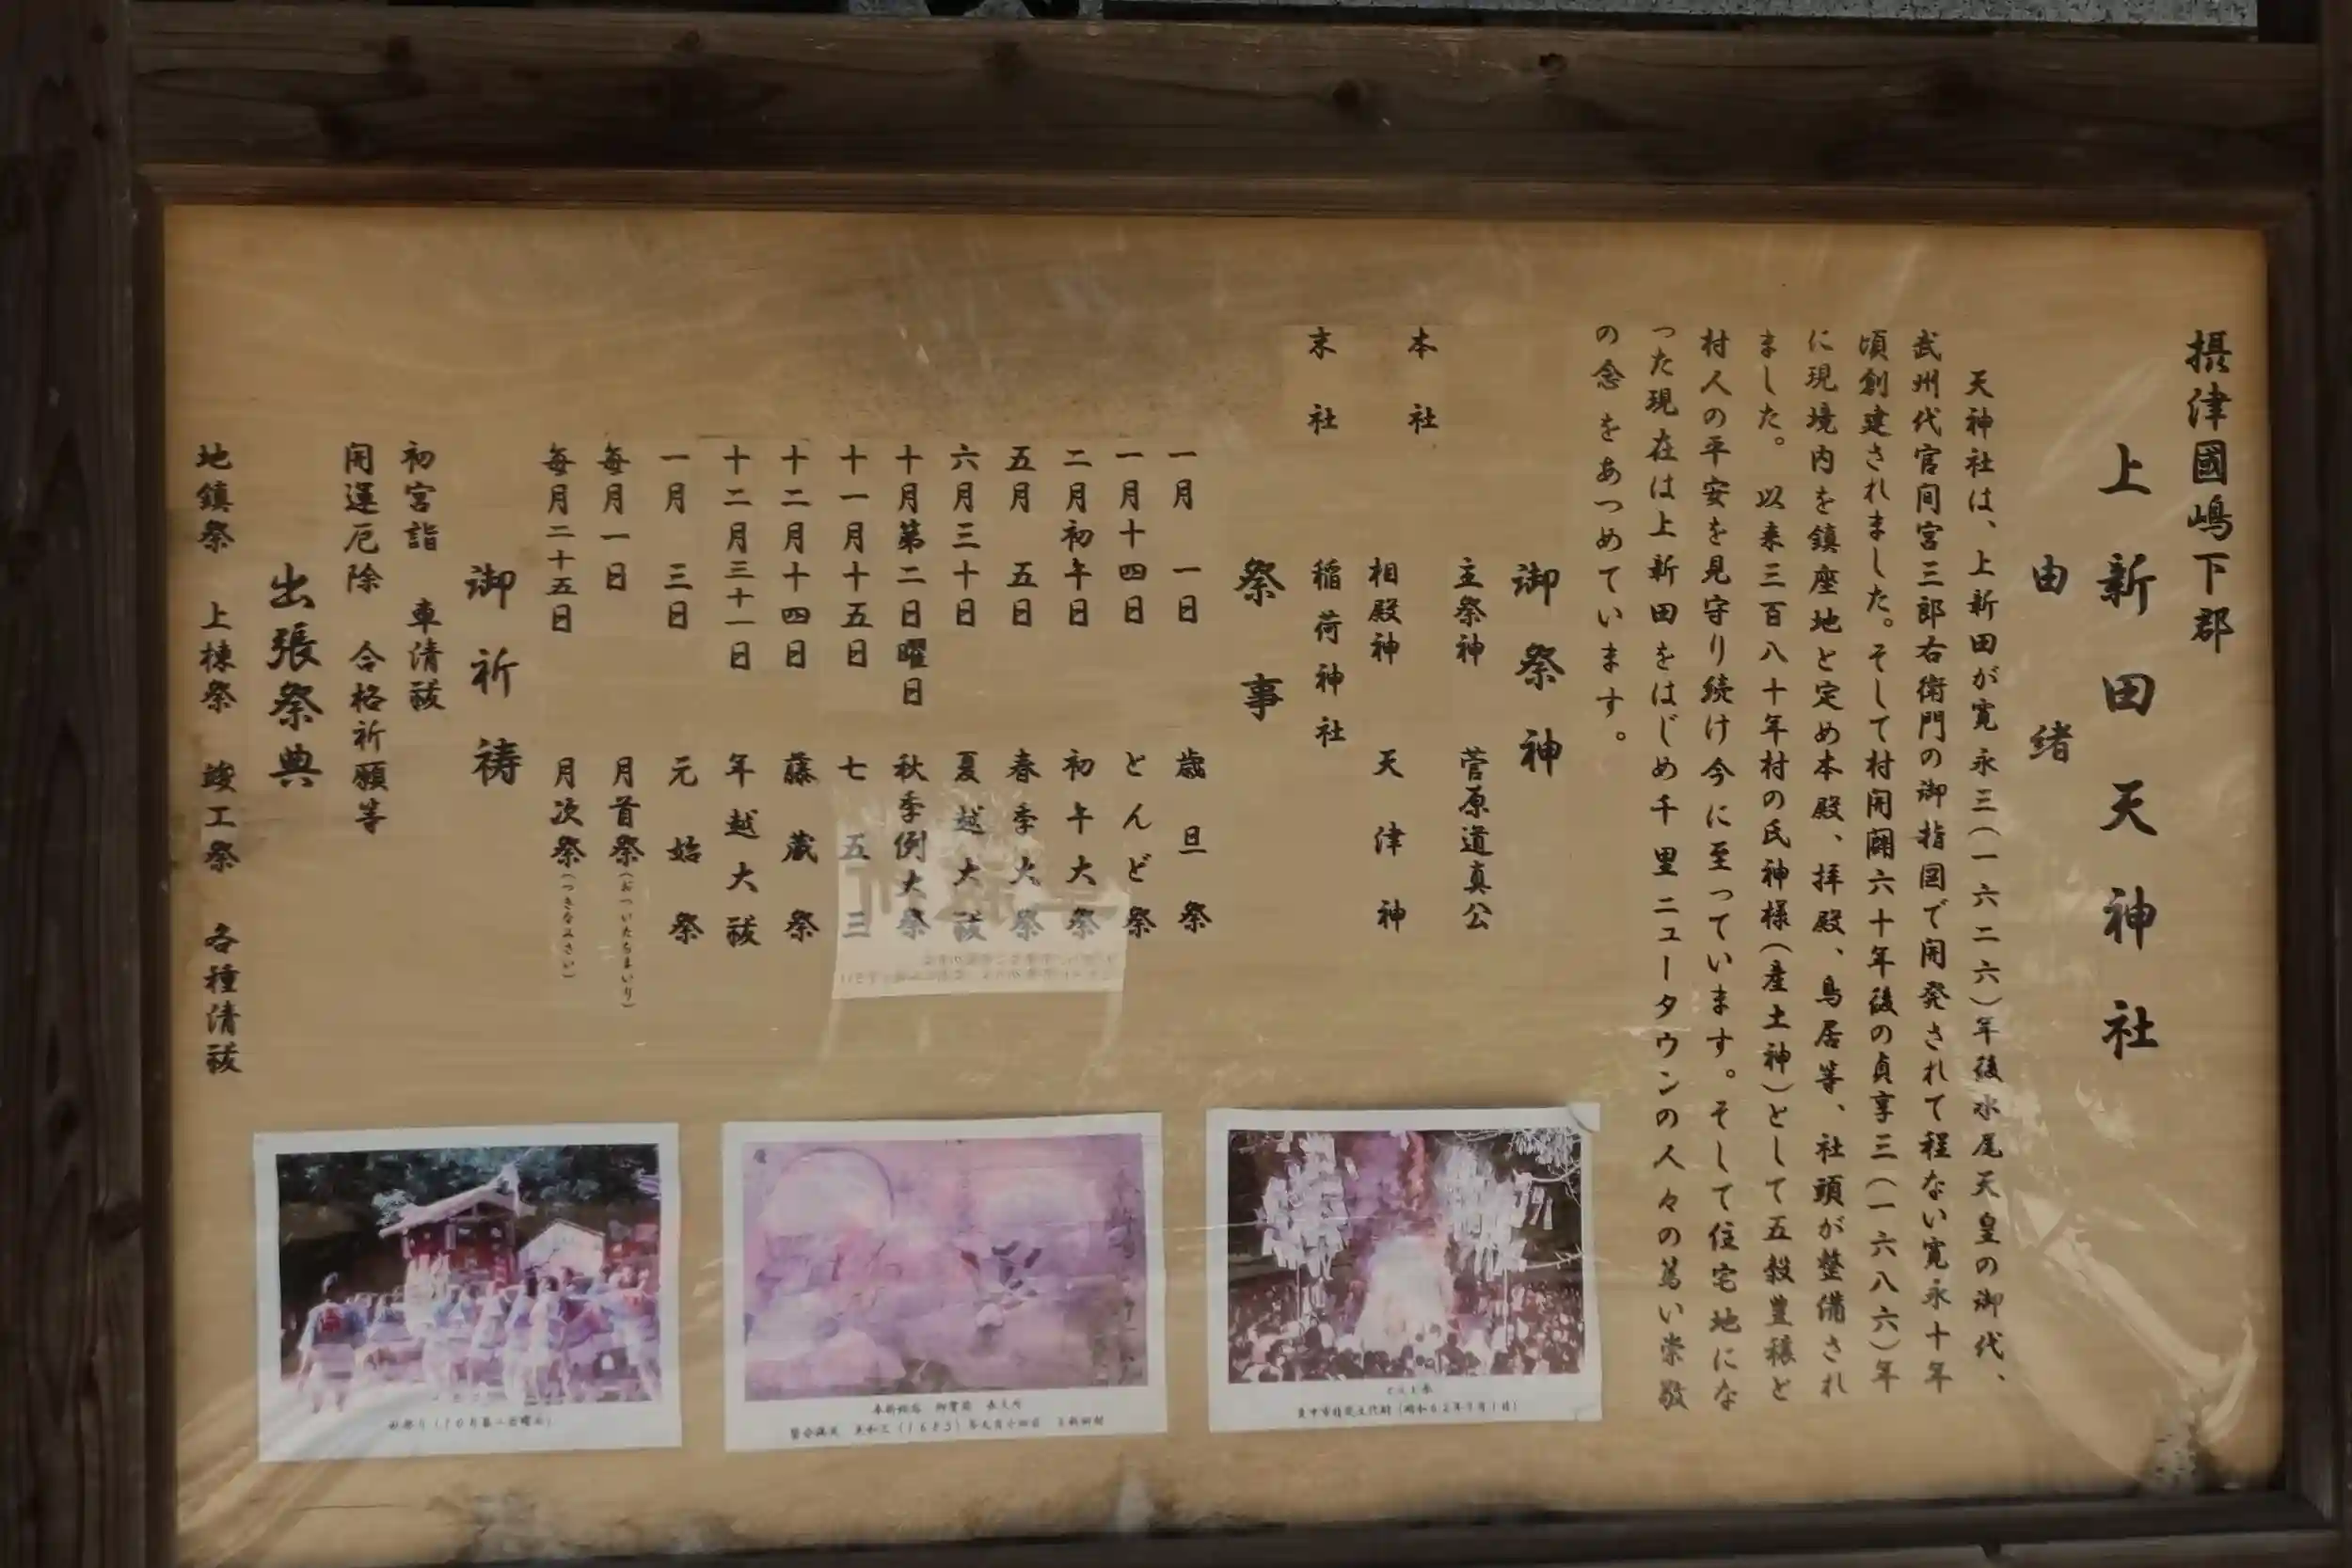 摂津國嶋下郡
上新田天神社
由緒
天神社は、上新田が寛永三(一六二六)年後水尾天皇の御代、
武州代官間宮三郎右衛門の御指図で開発されて程ない寛永十年
頃創建されました。そして村開闢六十年後の貞享三(一六八六)年
に現境内を鎮座地と定め本殿、拝殿、鳥居等、社頭が整備され
ました。 以来三百八十年村の氏神様(産土神)として五穀豊穣と
村人の平安を見守り続け今に至っています。そして住宅地にな
った現在は上新田をはじめ千里ニュータウンの人々の篤い崇敬
の念をあつめています。
御祭神
本社 主祭神 菅原道真公
相殿神 天津神
末社 稲荷神社
祭事
一月 一日 歳旦祭
一月十四日 とんど祭
二月初午日 初午大祭
五月 五日 春季大祭
六月三十日 夏越大祓
十月第二日曜日 秋季例大祭
十一月十五日 七五三
十二月十四日 藤蔵祭
十二月三十一日 年越大祓
一月 三日 元始祭
毎月一日 月首祭(おついたちまいり)
毎月二十五日 月次祭(つきなみさい)
御祈祷
初宮詣 車清祓
開運厄除 合格祈願等
出張祭典
地鎮祭 上棟祭 竣工祭 各種清祓
とんど祭
豊中市指定文化財(昭和62年3月1日)
秋祭り(10月第二日曜日)